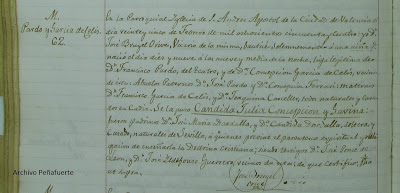 M.
Pardo y García de Celis,
62.
En la Parroquial Iglesia de S. Andres Apostol de la Ciudad de Valencia el
dia veinte y cinco de Febrero de mil ochocientos cincuenta y
D. José Bruzel Vicario de la misma, bauticé solemnemente a una niña
nació el dia diez y nueve a las nueve y media de la noche, hija legítima de
D. Francisco Pardo, del Teatro, y de D.ª Concepcion García de Celis, vecinos
de Abuelos Paternos D. José Pardo y D.ª Concepcion Ferrari; maternos
D. Francisco García de Celis, y D.ª Joaquina Canelles, todos naturales y
en Cadiz. Se la puso Candida Felix Concepcion y
fueron padrinos D. José Maria y D.ª Candida soltera, y
naturales de Sevilla, a quienes previne el parentesco espiritual y
gacion de enseñarla la Doctrina Cristiana; siendo testigos D. José
y D. José Ildefonso Guerrero, vecinos de de que certifico. Fha
ut supra.
José Bruzel
Archivo Peñafuerte